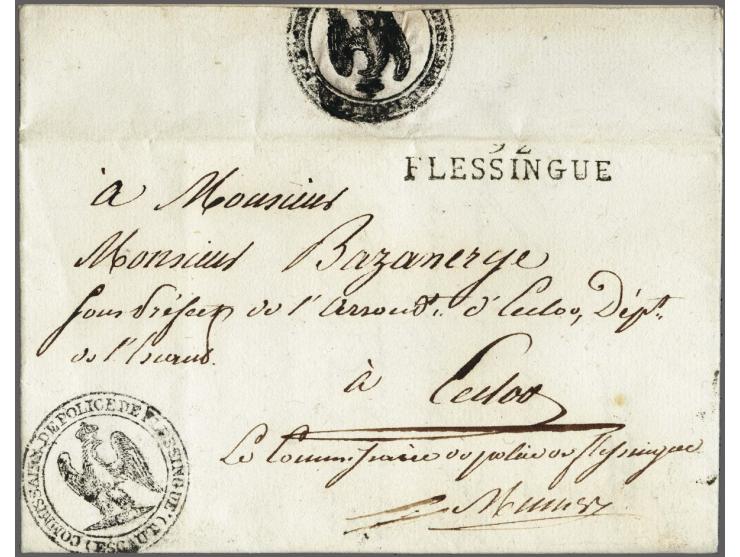 92
FLESSINGUE
à Monsieur
Monsieur Bazanerye
Sous Préfet de l'Arrondt. d'Ecloo, Dépt.
de l'Escaut.
à Ecloo
Le Commissaire de police de flessingue
COMMISSAIRE DE POLICE DE FLESSINGUE